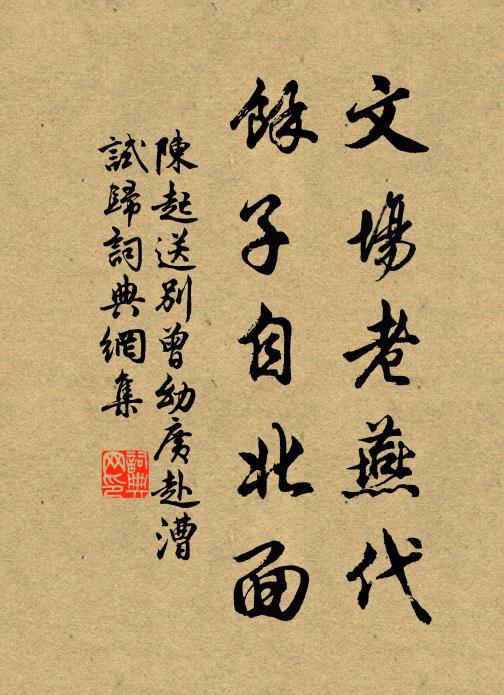 文場老燕代
餘子自北面
陳起送別曾幼度赴漕
試歸詞典網集
詞典
网印